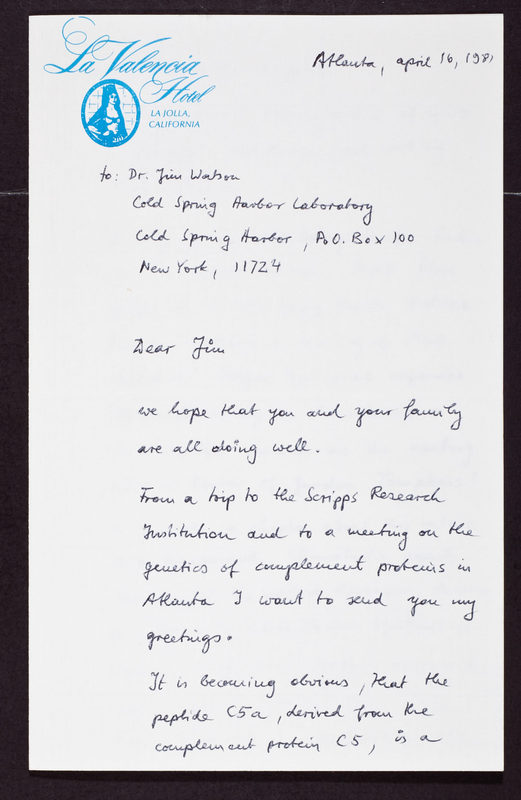 La Valencia
Hotel
LA JOLLA,
CALIFORNIA
Atlanta, april 16, 1981
to: Dr. Jim Watson
Cold Spring Harbor Laboratory
Cold Spring Harbor, P.O. Box 100
New York, 11724
Dear Jim
we hope that you and your family
are all doing well.
From a trip to the Scripps Research
Institution and to a meeting on the
genetics of complement proteins in
Atlanta I want to send you my
greetings.
It is becoming obvious, that the
peptide C5a, derived from the
complement protein C5, is a